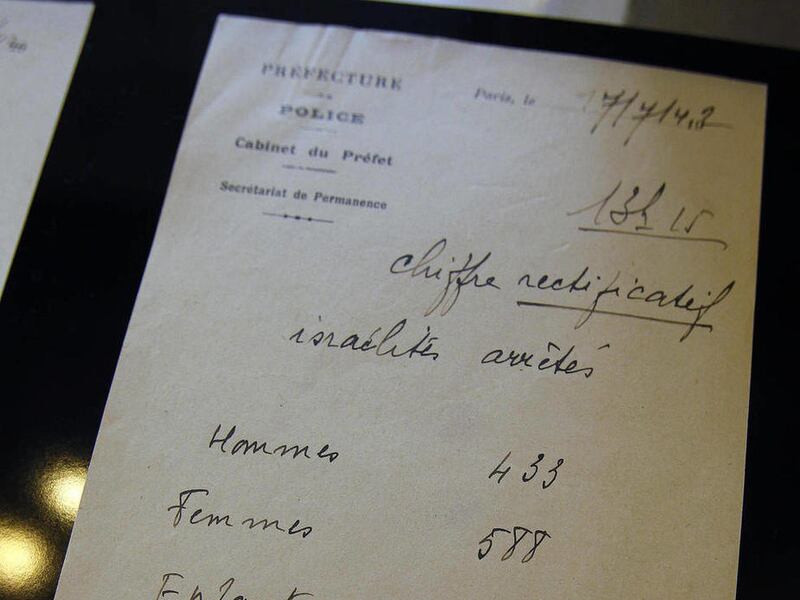 PRÉFECTURE
DE
POLICE
Cabinet du Préfet
Secrétariat de Permanence
Paris, le 17/7/42
13h 15
chiffre rectificatif
israélites arrêtés
Hommes 433
Femmes 588